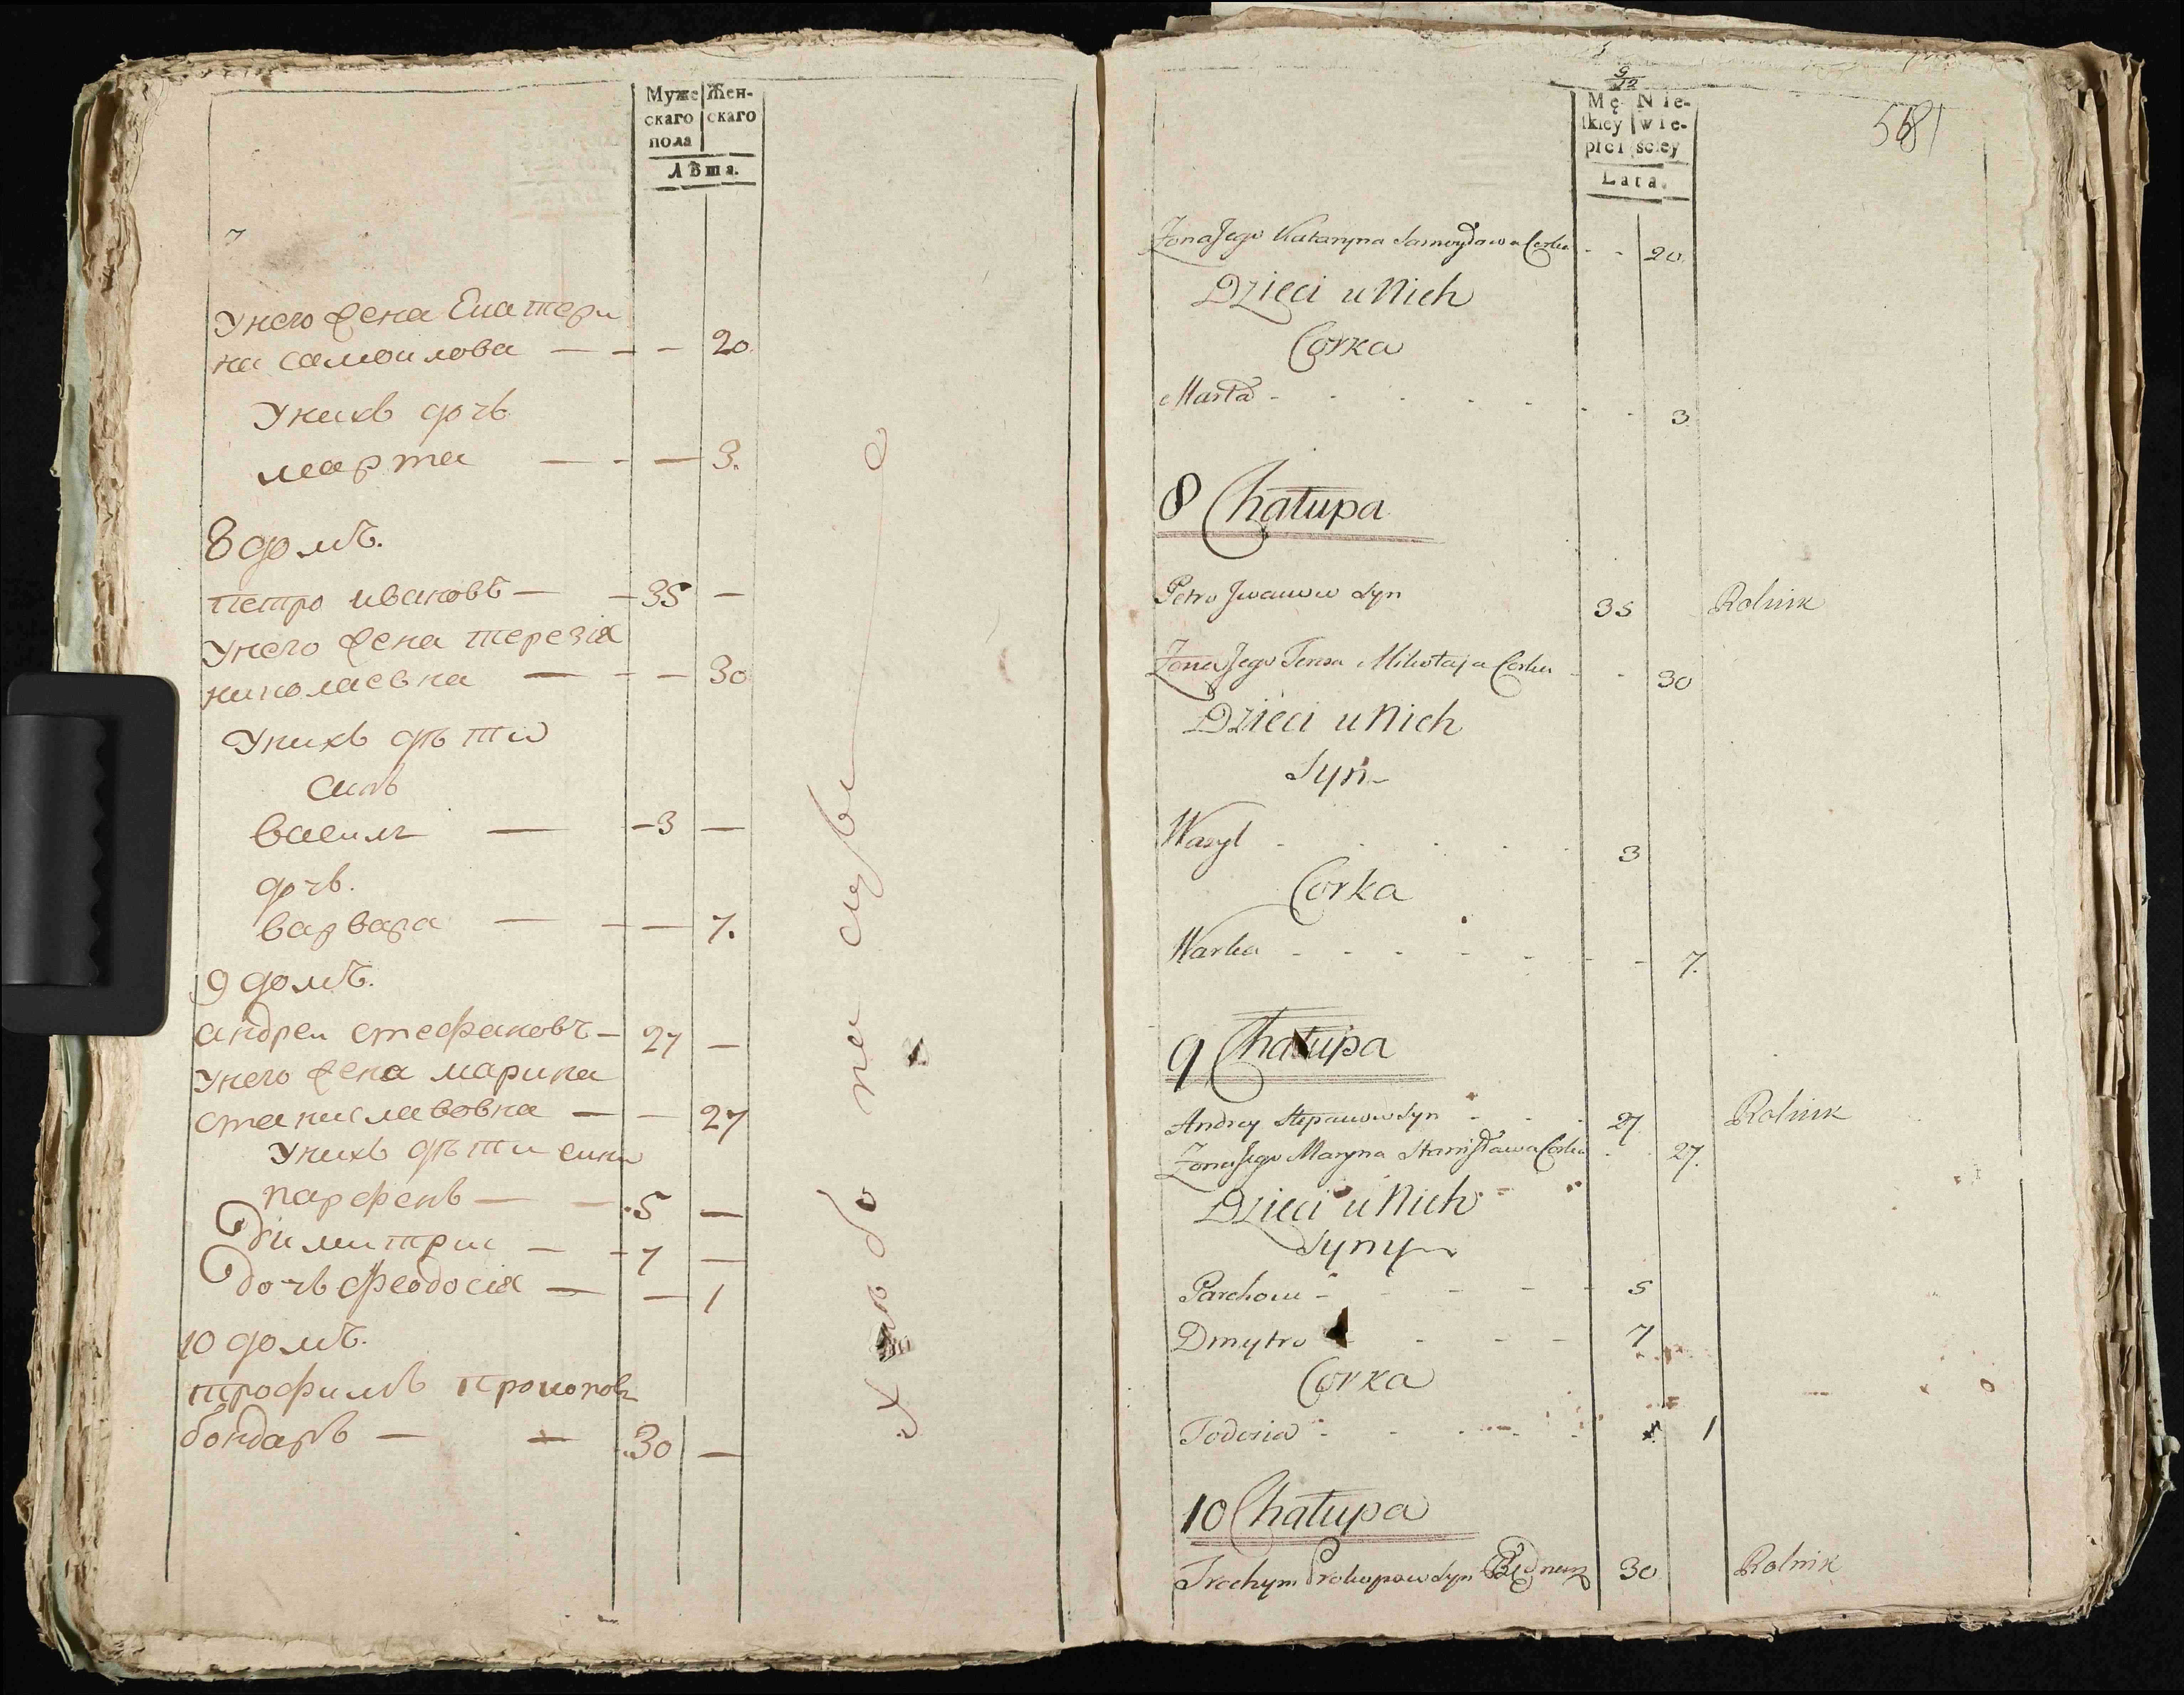 Муже Жен-
скаго скаго
пола
Лѣта.
7
У него жена Екатери
на самоилова — — — 20
У нихъ дочь
марта — — — 3.
8 домъ.
петро ивановъ — — 35 —
У него жена терезія
николаевна — — — 30
У нихъ дѣти
синъ
василь — — 3 —
дочь.
варвара — — — 7.
9 домъ.
андреи стефановъ — 27 —
У него жена марина
станиславовна — — 27
У нихъ дѣти сини
парфенъ — — 5 —
Димитрии — — 7 —
Дочь феодосія — — 1
10 домъ.
трофимъ прокоповъ
бондарь — — 30 —
хлѣбопашцы
9/12
Mę- Nie-
skiey wie-
płci sciey
Lata.
581
Zona Jego Kataryna Samoyława Corka - - 20.
Dzieci u Nich
Corka
Marta - - - - - - - 3
8 Chałupa
Petro Jwanow Syn 35 Rolnik
Zona Jego Teresa Mikołaja Corka - - 30
Dzieci u Nich
Syn
Wasyl - - - - - 3
Corka
Warka - - - - - - - 7.
9 Chałupa
Andrey Stepanow Syn - - - 27 Rolnik
Zona Jego Maryna Stanisława Corka - - 27.
Dzieci u Nich
Syny
Parchom - - - - - 5
Dmytro - - - - 7
Corka
Todosia - - - - - 1
10 Chałupa
Trochym Prokopow Syn Bednarz 30 Rolnik